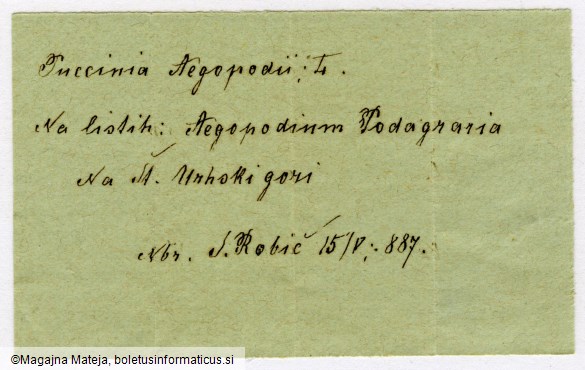 Puccinia Aegopodii: L.
Na listih: Aegopodium Podagraria
Na Št. Urhoki gori
Nbr. S. Robič 15/V; 887.
©Magajna Mateja, boletusinformaticus.si